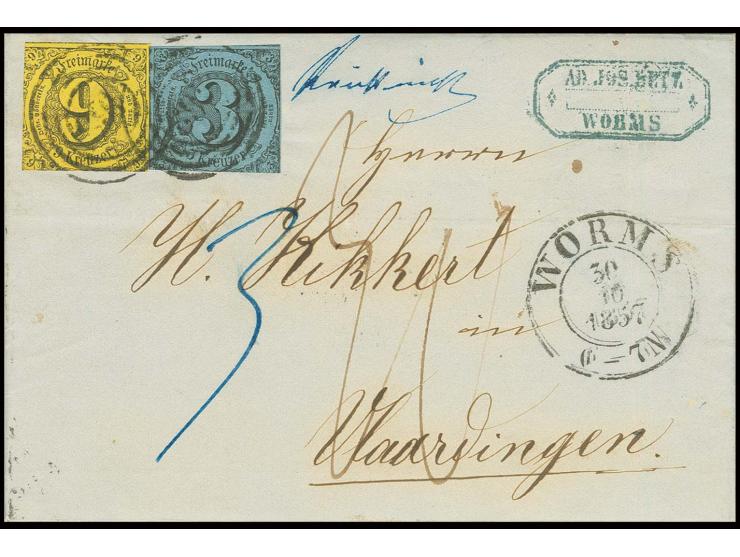 Freimarke
9
Kreuzer
Freimarke
3
Kreuzer
AD. JOS.
WORMS
Herrn
H. Kikkert
in
Vlaardingen.
3
WORMS
30
10
1857
6–7N